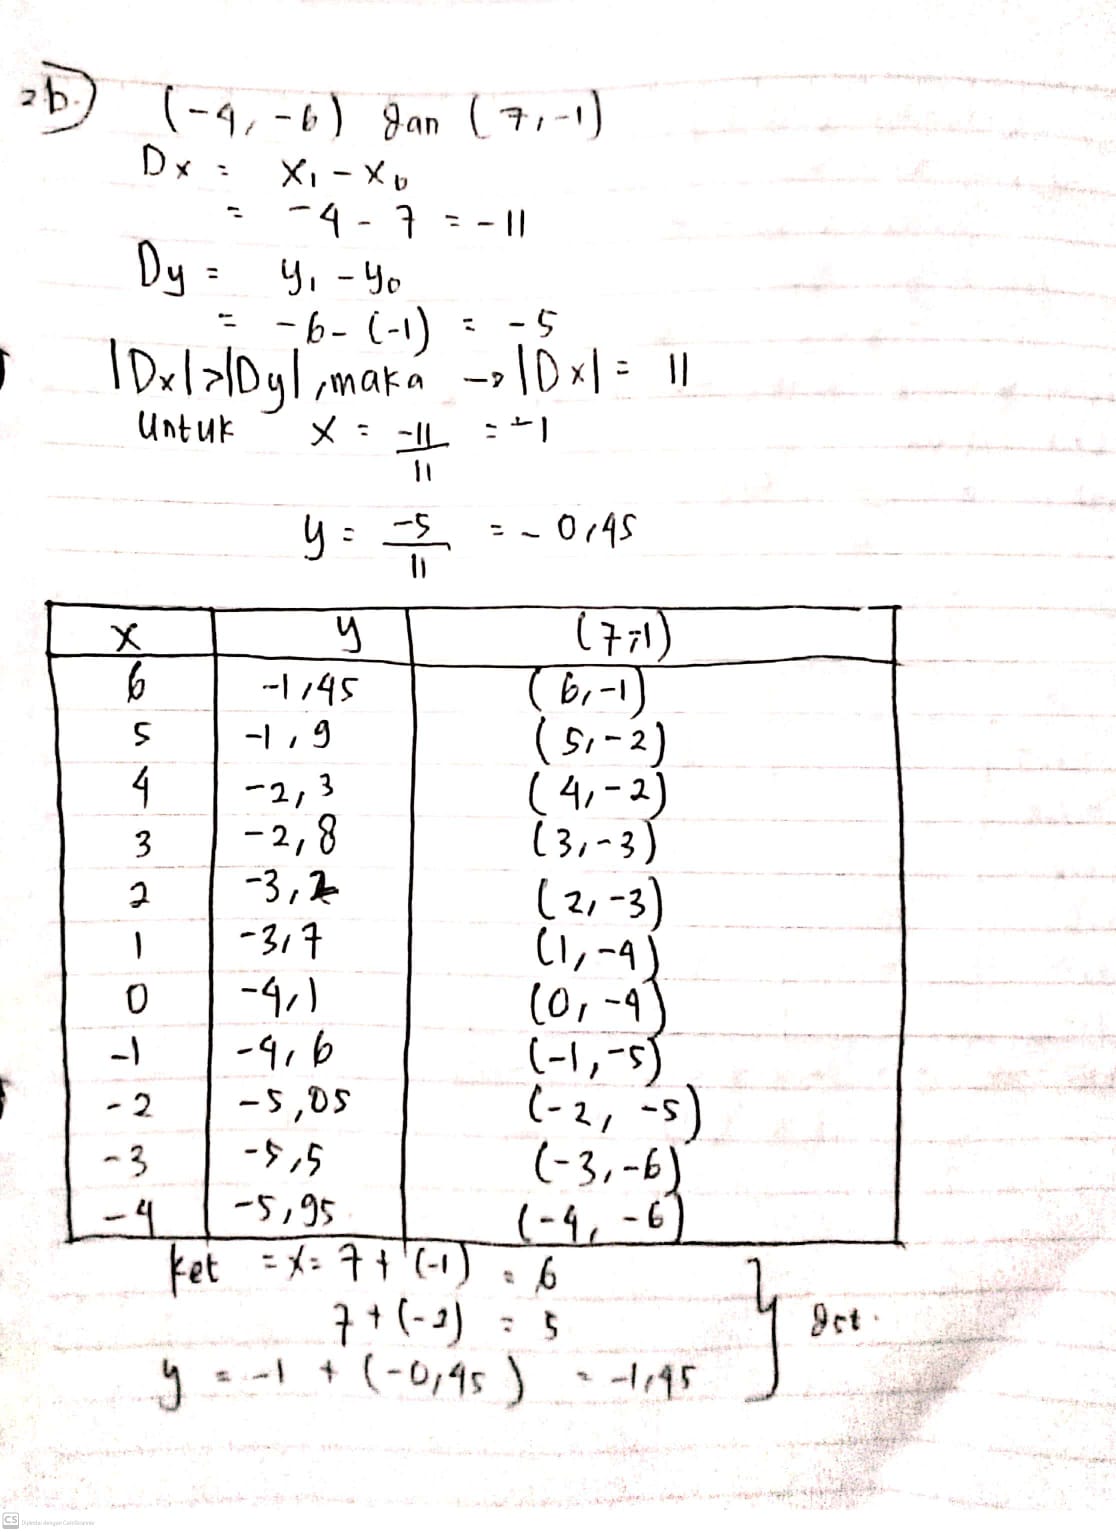 2b.) (-4, -6) dan (7,-1)
Dx = x₁ - x₀
= -4 - 7 = -11
Dy = y₁ - y₀
= -6 - (-1) = -5
|Dx|>|Dy|, maka → |Dx| = 11
Untuk x = -11/11 = -1
y = -5/11 = -0,45
x y (7,-1)
6 -1,45 (6,-1)
5 -1,9 (5,-2)
4 -2,3 (4,-2)
3 -2,8 (3,-3)
2 -3,2 (2,-3)
1 -3,7 (1,-4)
0 -4,1 (0,-4)
-1 -4,6 (-1,-5)
-2 -5,05 (-2, -5)
-3 -5,5 (-3,-6)
-4 -5,95 (-4, -6)
ket = x = 7 + (-1) = 6
7 + (-2) = 5
} dst.
y = -1 + (-0,45) = -1,45
CS Dipindai dengan CamScanner